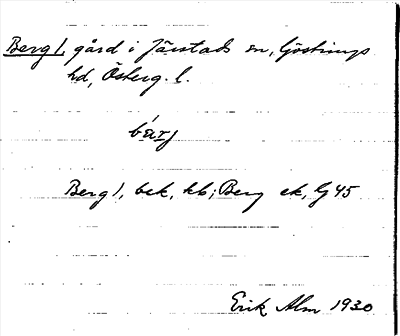 Berg), gård i Järstads sn, Göstrings
hd, Österg. l.
bærj
Berg), bek, kb; Berg ek, G 45
Erik Alm 1930